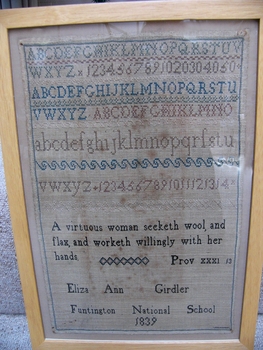 ABCDEFGHIJKLMNOPQRSTUV
WXYZ 1234567891020304050
ABCDEFGHIJKLMNOPQRSTU
VWXYZ ABCDEFGHIJKLMNO
abcdefghijklmnopqrſstu
VWXYZ 1234567891011121314
A virtuous woman seeketh wool, and
flax, and worketh willingly with her
hands Prov XXXI 13
Eliza Ann Girdler
Funtington National School
1839